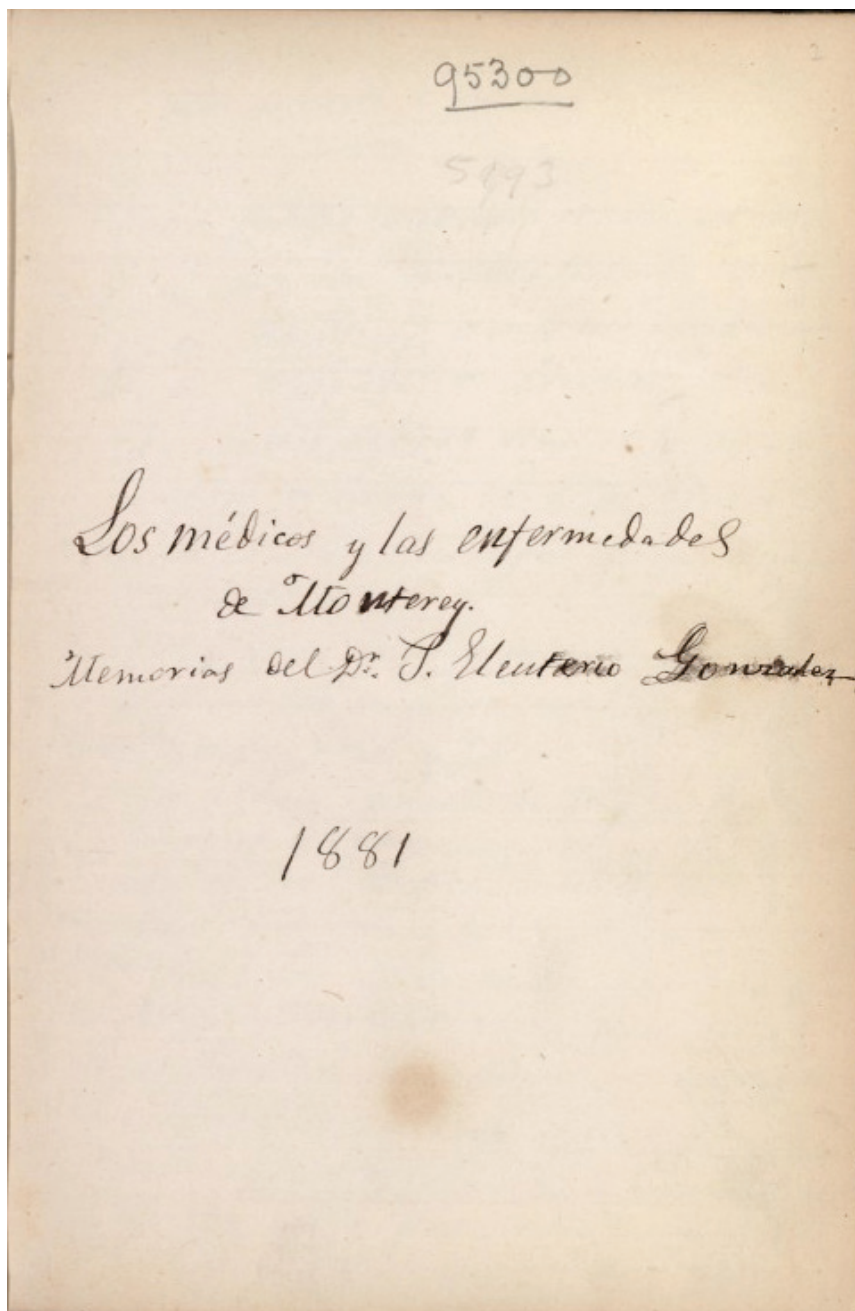 95300
Los médicos y las enfermedades
de Monterey.
Memorias del Dr. J. Eleuterio Gonzalez
1881